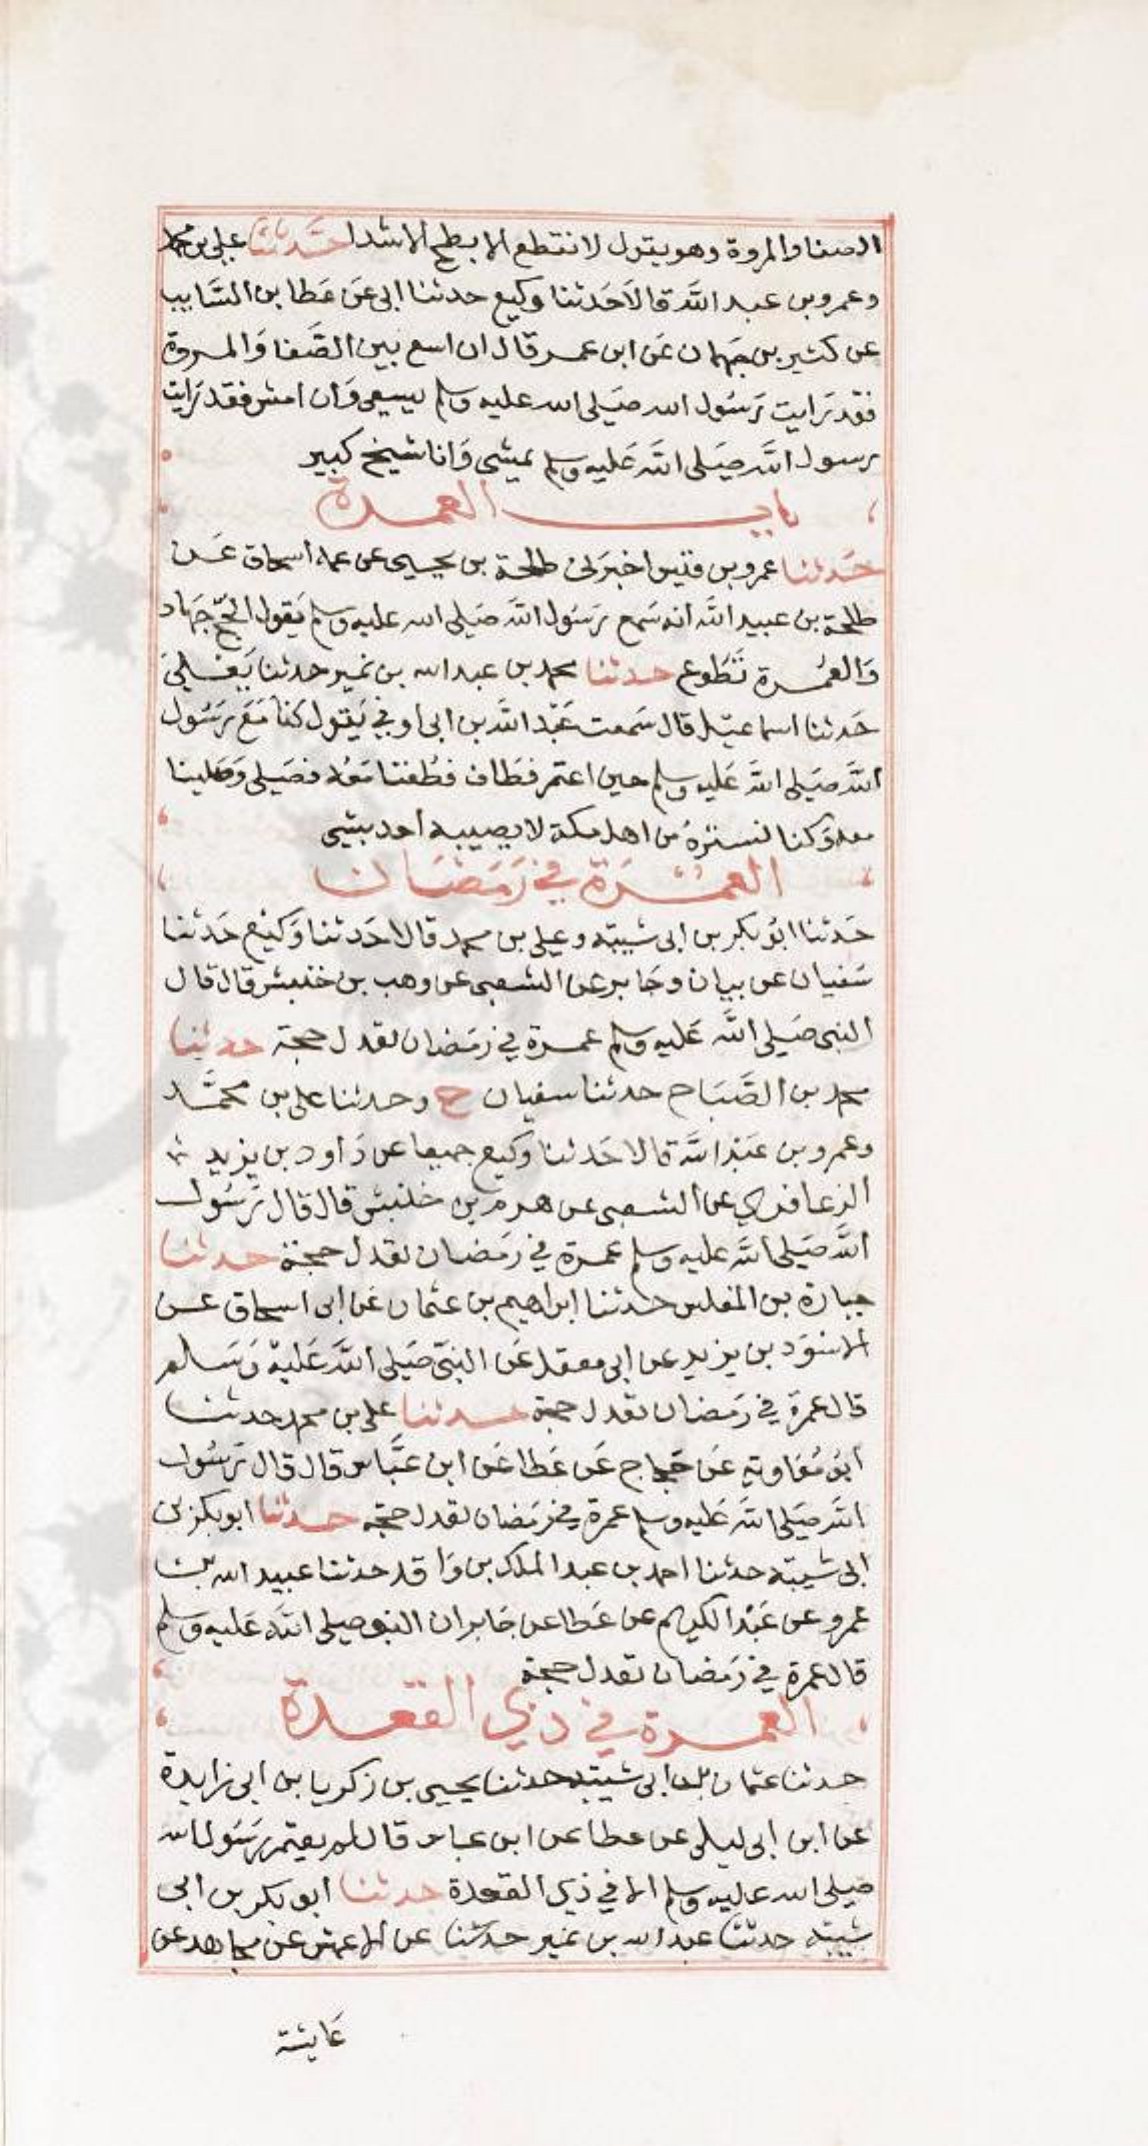 الصفا والمروة وهو يقول لا نقطع الابطح الا شدا حدثنا علي بن محمد
وعمرو بن عبد الله قالا حدثنا وكيع حدثنا ابي عن عطا بن السايب
عن كثير بن جهمان عن ابن عمر قال ان اسع بين الصفا والمروة
فقد رايت رسول الله صلى الله عليه وسلم يسعى وان امش فقد رايت
رسول الله صلى الله عليه وسلم يمشي وانا شيخ كبير
باب العمرة
حدثنا عمرو بن قيس اخبرني طلحة بن يحيى عن عمه اسحاق عن
طلحة بن عبيد الله انه سمع رسول الله صلى الله عليه وسلم يقول الحج جهاد
والعمرة تطوع حدثنا محمد بن عبد الله بن نمير حدثنا يعلى
حدثنا اسماعيل قال سمعت عبد الله بن ابي اوفي يقول كنا مع رسول
الله صلى الله عليه وسلم حين اعتمر فطاف فطفنا معه فصلى وصلينا
معه وكنا نستره من اهل مكة لا يصيبه احد بشي
العمرة في رمضان
حدثنا ابو بكر بن ابي شيبة وعلي بن محمد قالا حدثنا وكيع حدثنا
سفيان عن بيان وجابر عن الشعبي عن وهب بن خنبش قال قال
النبي صلى الله عليه وسلم عمرة في رمضان تعدل حجة حدثنا
محمد بن الصباح حدثنا سفيان ح وحدثنا علي بن محمد
وعمرو بن عبد الله قالا حدثنا وكيع جميعا عن داود بن يزيد
الزعافري عن الشعبي عن هرم بن خنبش قال قال رسول
الله صلى الله عليه وسلم عمرة في رمضان تعدل حجة حدثنا
جبارة بن المغلس حدثنا ابراهيم بن عثمان عن ابي اسحاق عن
الاسود بن يزيد عن ابي معقل عن النبي صلى الله عليه وسلم
قال عمرة في رمضان تعدل حجة حدثنا علي بن محمد حدثنا
ابو معاوية عن حجاج عن عطا عن ابن عباس قال قال رسول
الله صلى الله عليه وسلم عمرة في رمضان تعدل حجة حدثنا ابو بكر بن
ابي شيبة حدثنا احمد بن عبد الملك بن واقد حدثنا عبيد الله بن
عمرو عن عبد الكريم عن عطا عن جابر ان النبي صلى الله عليه وسلم
قال عمرة في رمضان تعدل حجة
العمرة في ذي القعدة
حدثنا عثمان بن ابي شيبة حدثنا يحيى بن زكريا بن ابي زايدة
عن ابن ابي ليلى عن عطا عن ابن عباس قال لم يعتمر رسول الله
صلى الله عليه وسلم الا في ذي القعدة حدثنا ابو بكر بن ابي
شيبة حدثنا عبد الله بن نمير حدثنا عن الاعمش عن مجاهد عن
عايشة